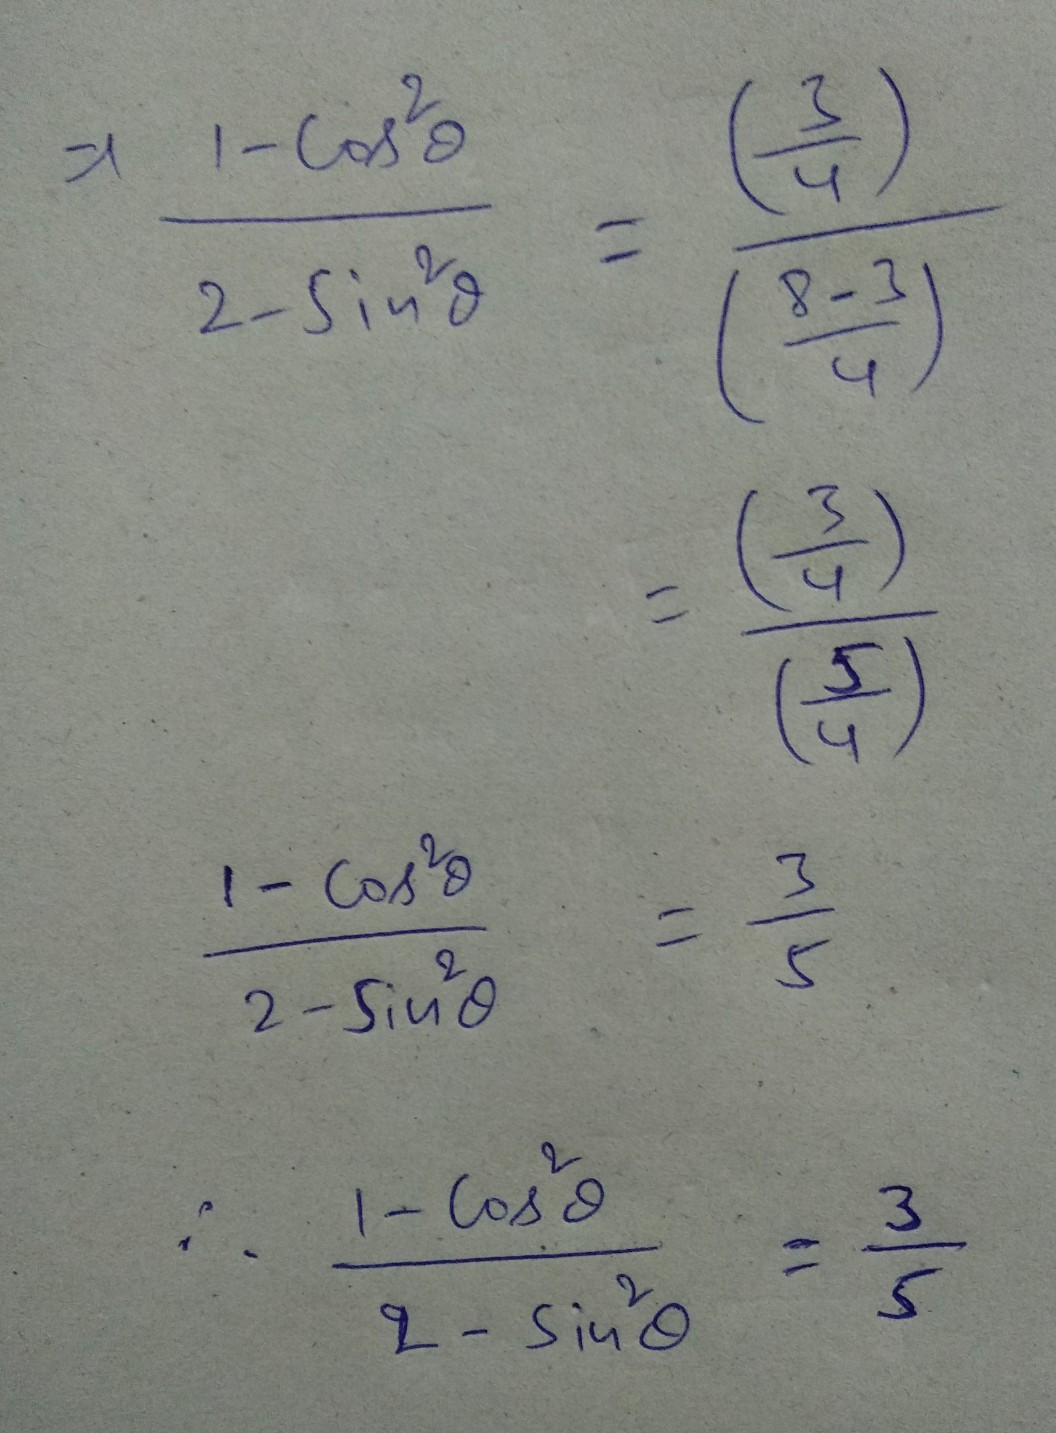 ⇒ (1 - cos²θ)/(2 - sin²θ) = (3/4)/((8-3)/4)
= (3/4)/(5/4)
(1 - cos²θ)/(2 - sin²θ) = 3/5
∴ (1 - cos²θ)/(2 - sin²θ) = 3/5